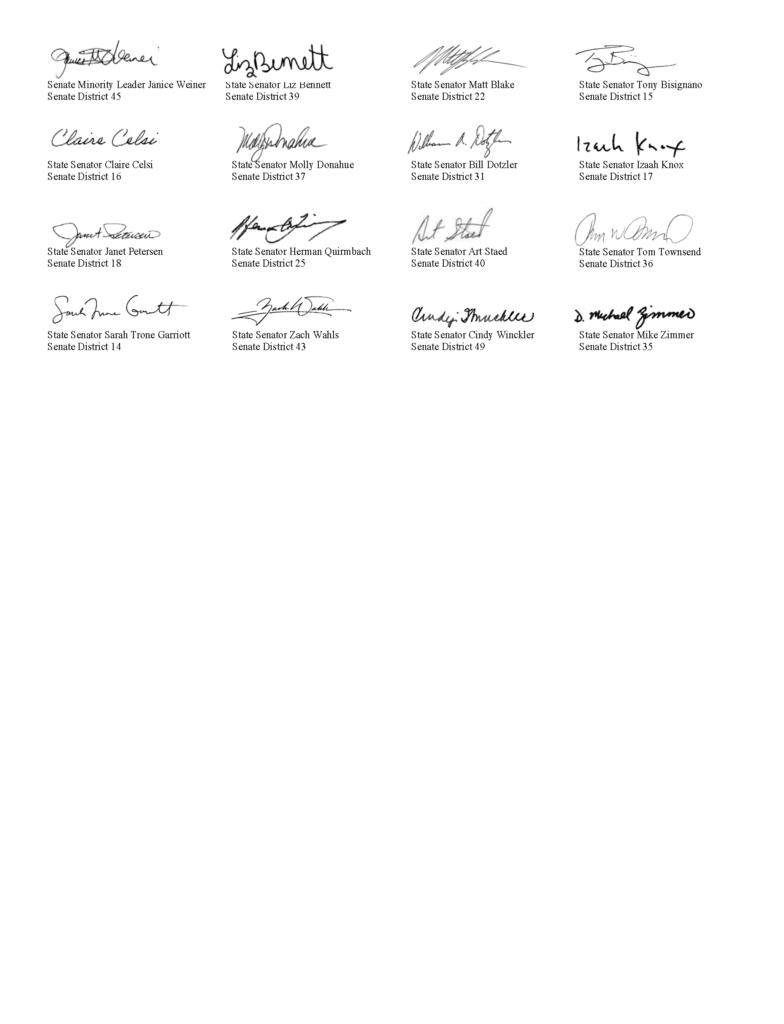 Janice Weiner
Liz Bennett
Senate Minority Leader Janice Weiner
State Senator Liz Bennett
State Senator Matt Blake
State Senator Tony Bisignano
Senate District 45
Senate District 39
Senate District 22
Senate District 15
Claire Celsi
Molly Donahue
William A. Dotzler
Izaah Knox
State Senator Claire Celsi
State Senator Molly Donahue
State Senator Bill Dotzler
State Senator Izaah Knox
Senate District 16
Senate District 37
Senate District 31
Senate District 17
Janet Petersen
Art Staed
State Senator Janet Petersen
State Senator Herman Quirmbach
State Senator Art Staed
State Senator Tom Townsend
Senate District 18
Senate District 25
Senate District 40
Senate District 36
Sarah Trone Garriott
Zach Wahls
Cindy Winckler
D. Michael Zimmer
State Senator Sarah Trone Garriott
State Senator Zach Wahls
State Senator Cindy Winckler
State Senator Mike Zimmer
Senate District 14
Senate District 43
Senate District 49
Senate District 35